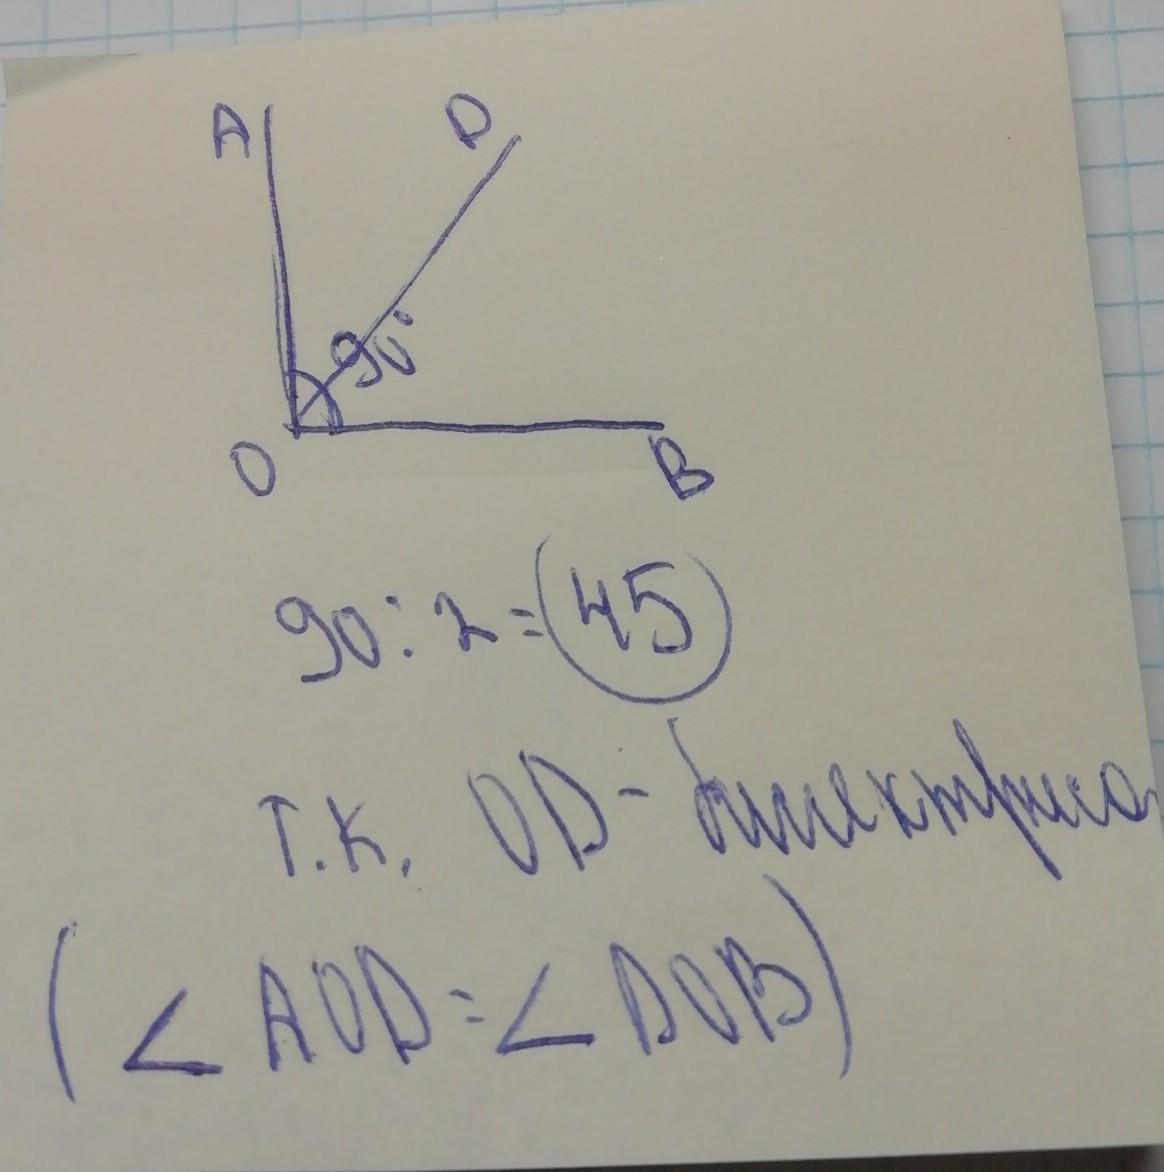 A D
90°
O B
90:2=45
Т.К. OD - биссектриса
(∠AOD=∠DOB)